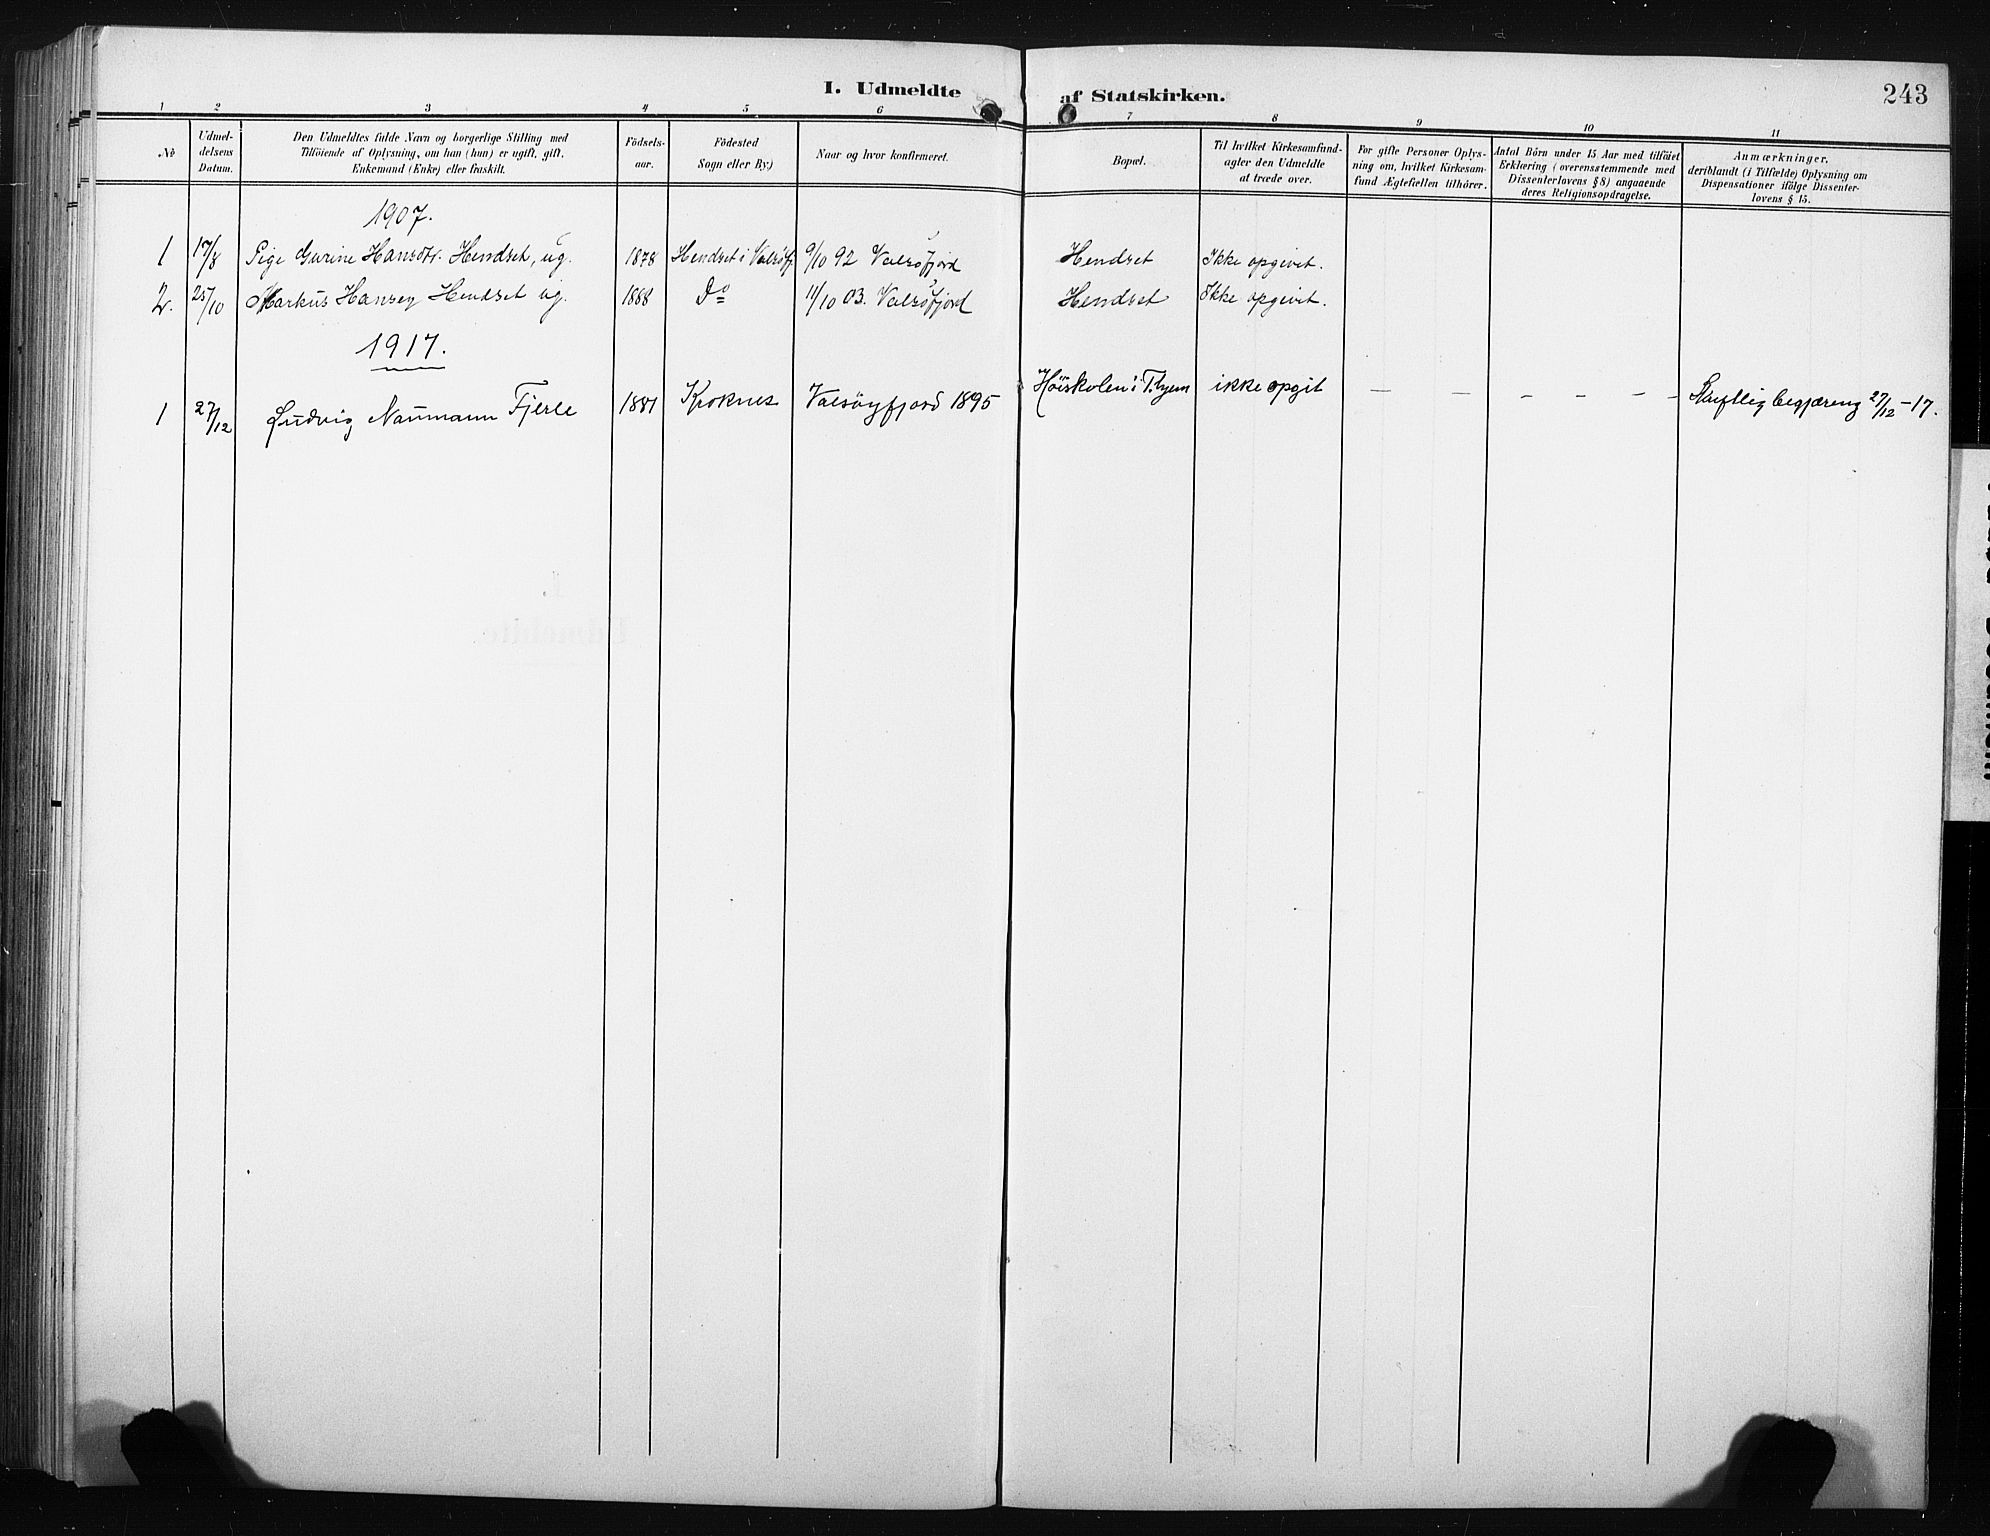 I. Udmeldte af Statskirken.
243
1 2 3 4 5 6 7 8 9 10 11
No
Udmel-
delsens
Datum.
Den Udmeldtes fulde Navn og borgerlige Stilling med
Tilföiende af Oplysning, om han (hun) er ugift, gift,
Enkemand (Enke) eller fraskilt.
Födsels-
aar.
Födested
Sogn eller By.)
Naar og hvor konfirmeret.
Bopæl.
Til hvilket Kirkesamfund-
agter den Udmeldte
at træde over.
For gifte Personer Oplys-
ning om, hvilket Kirkesam-
fund Ægtefællen tilhörer.
Antal Börn under 15 Aar med tilföiet
Erklæring (overensstemmende med
Dissenterlovens § 8) angaaende
deres Religionsopdragelse.
Anmærkninger,
deriblandt (i Tilfælde) Oplysning om
Dispensationer ifölge Dissenter-
lovens § 15.
1907.
1 17/8 Pige Gurine Hansdtr. Hendset, ug. 1878 Hendset i Valsöfj 9/10 92 Valsöfjord Hendset Ikke opgivet.
2. 25/10 Markus Hansen Hendset ug. 1888 Do 11/10 03. Valsöfjord Hendset Ikke opgivet.
1917.
1 27/12 Ludvig Naumann Fjerle 1881 Kroknes Valsöyfjord 1895 Höiskolen i T.hjem ikke opgit — — — — — — Skriftlig begjæreng 27/12 -17.
I.
Udmeldte.